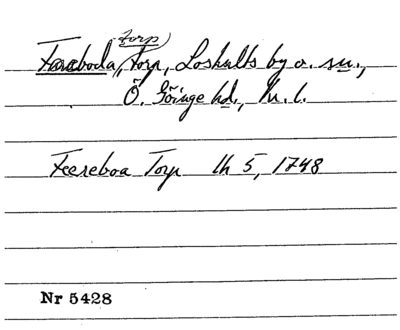 torp)
Fareboda, torp, Loshults by o. sn.,
Ö. Göinge hd., Kr. l.
Feereboa Torp lh 5, 1748
Nr 5428